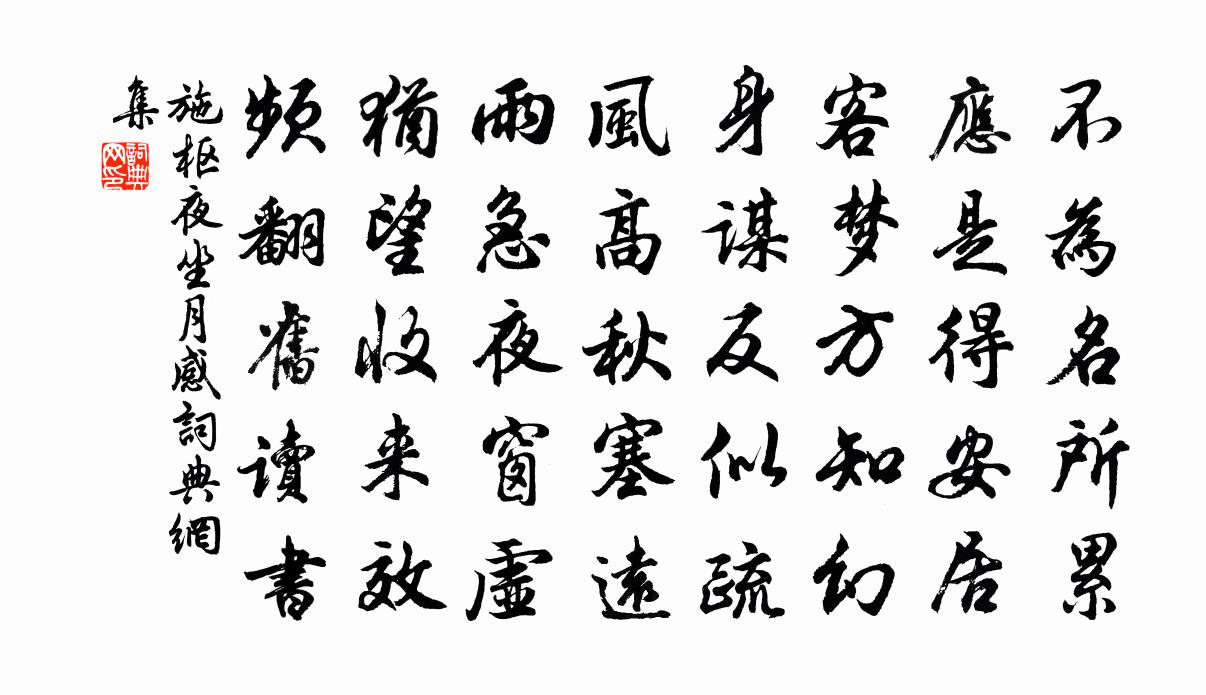 不為名所累
應是得安居
客梦方知幻
身謀反似疏
風高秋塞遠
雨急夜窗虛
猶望收来效
頻翻舊讀書
施枢夜坐月感詞典網
集
詞典網印